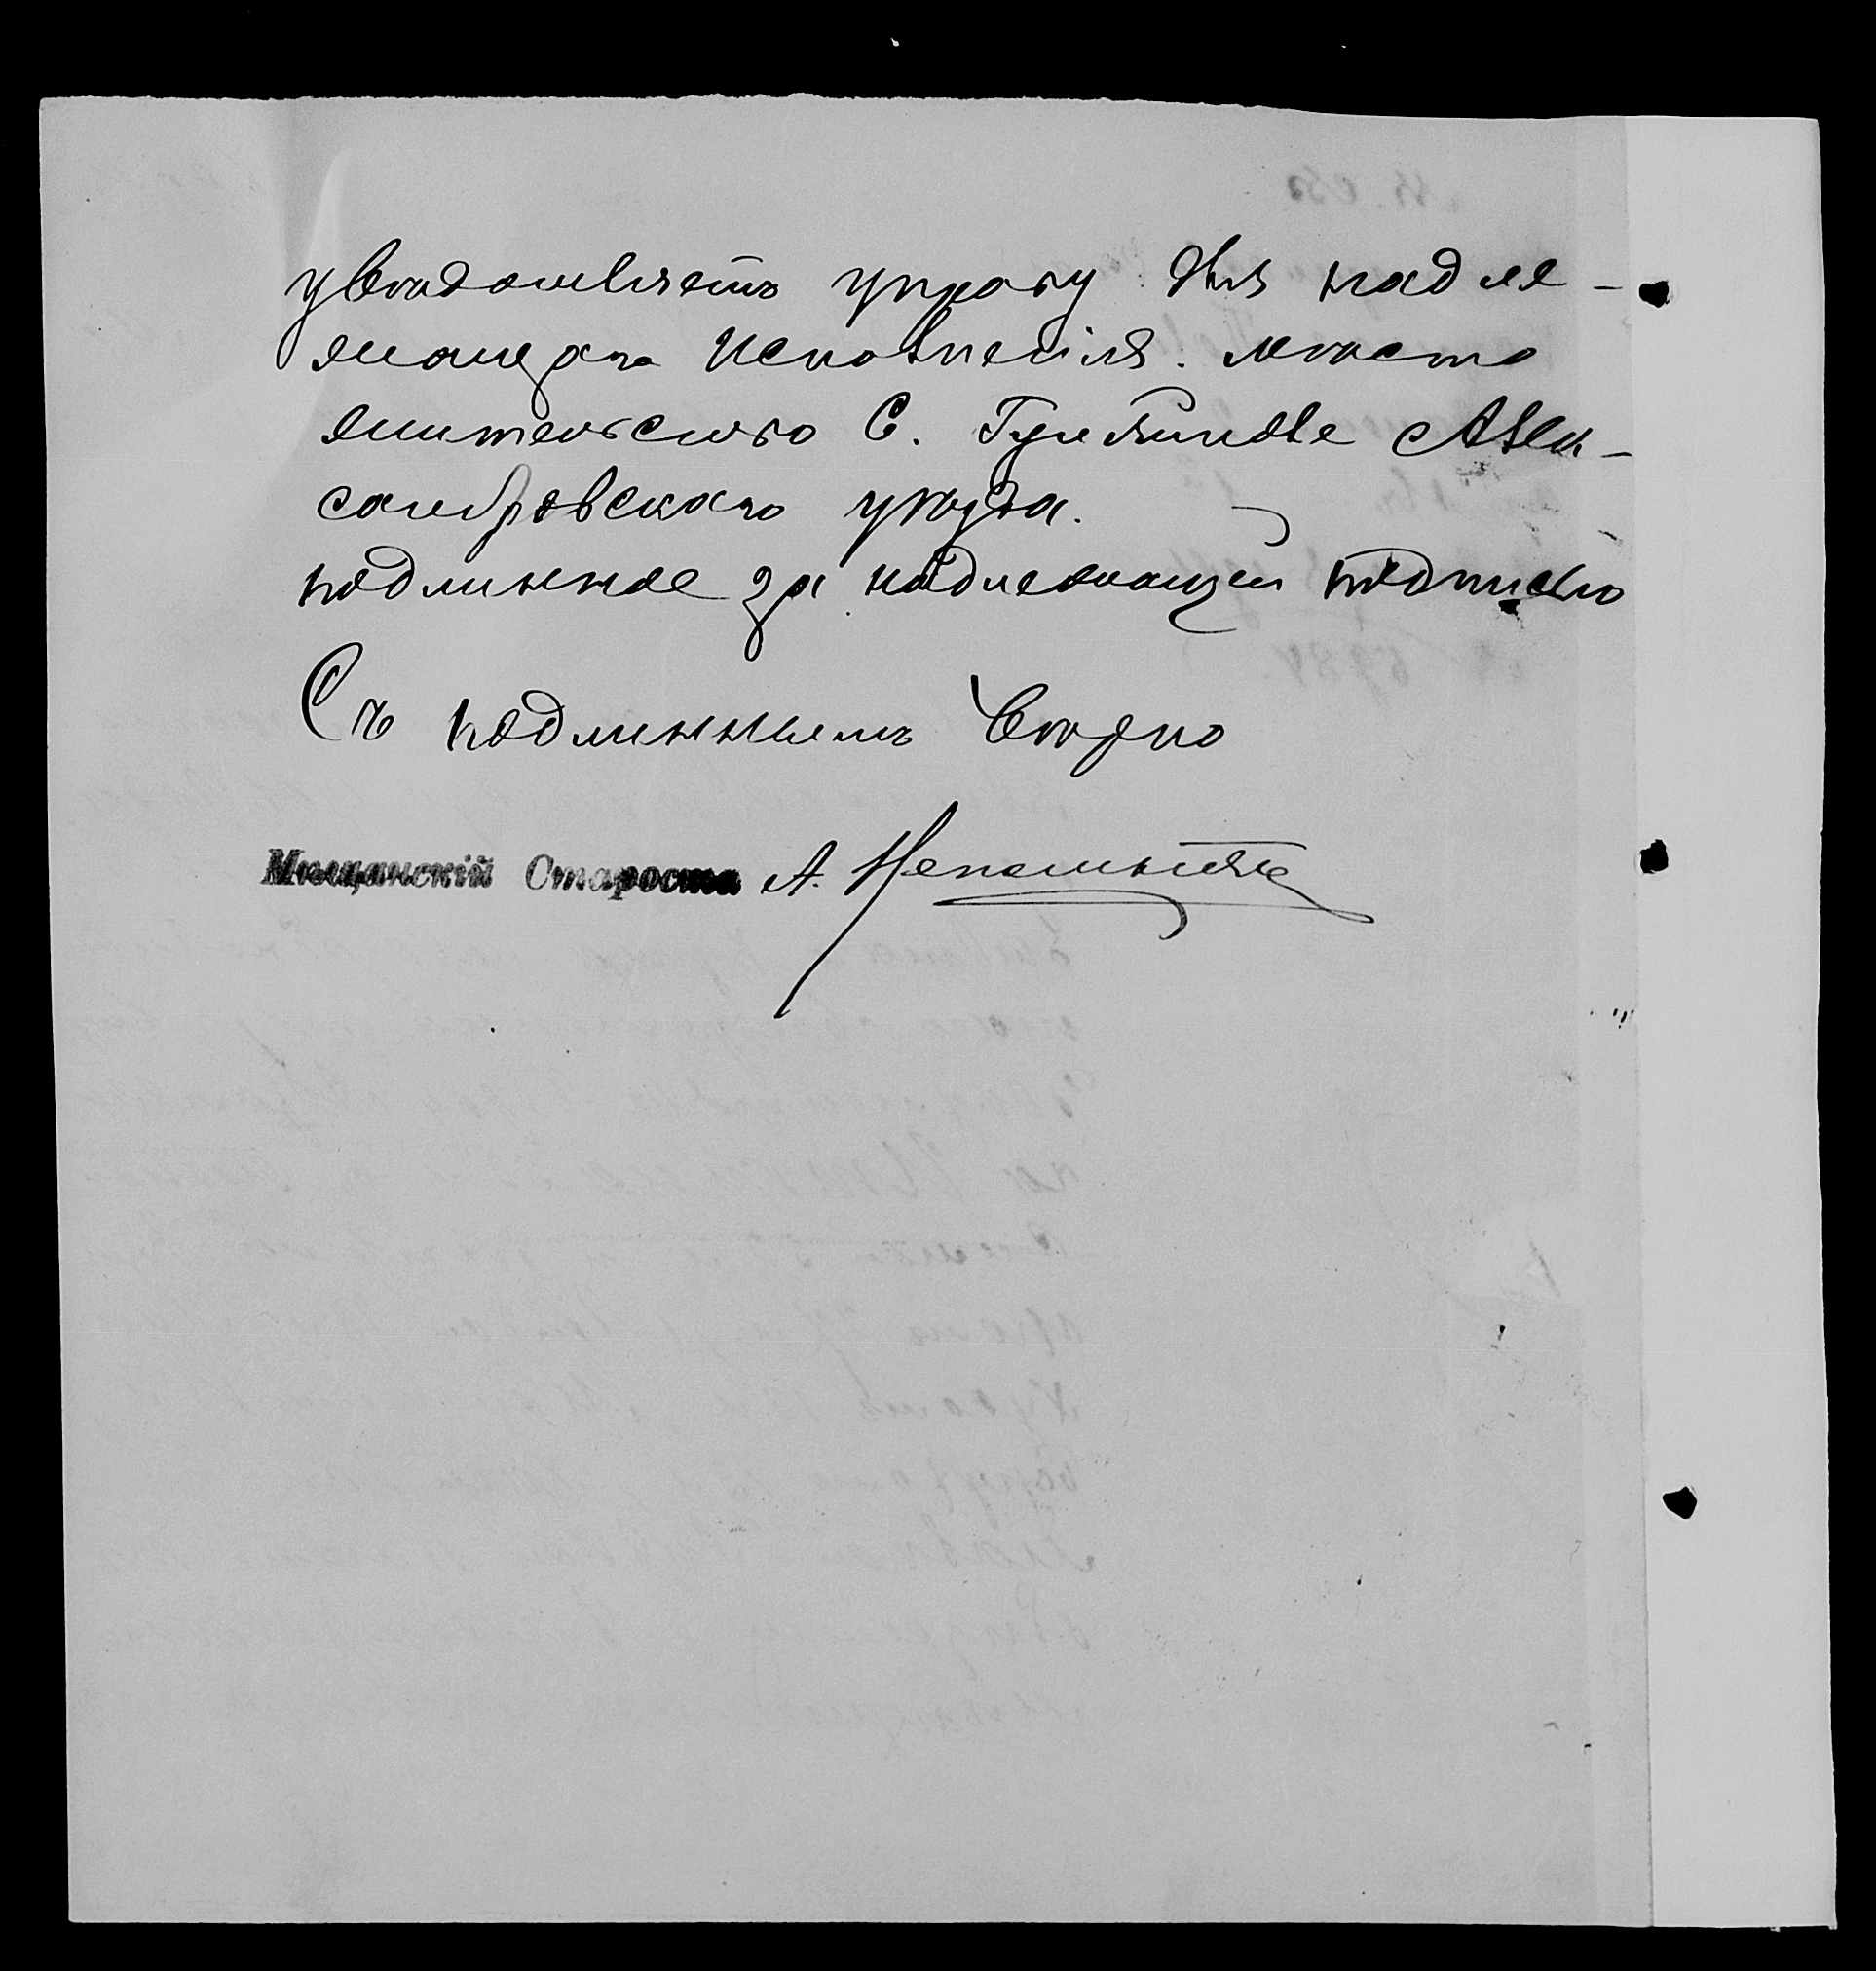 увѣдомляетъ управу для надле-
жащаго исполненія. мѣсто
жительство С. Гуляйполе Алек-
сандровскаго уѣзда.
подлинное за надлежащей подписью
Съ подлиннымъ вѣрно
Мѣщанскій Староста А.